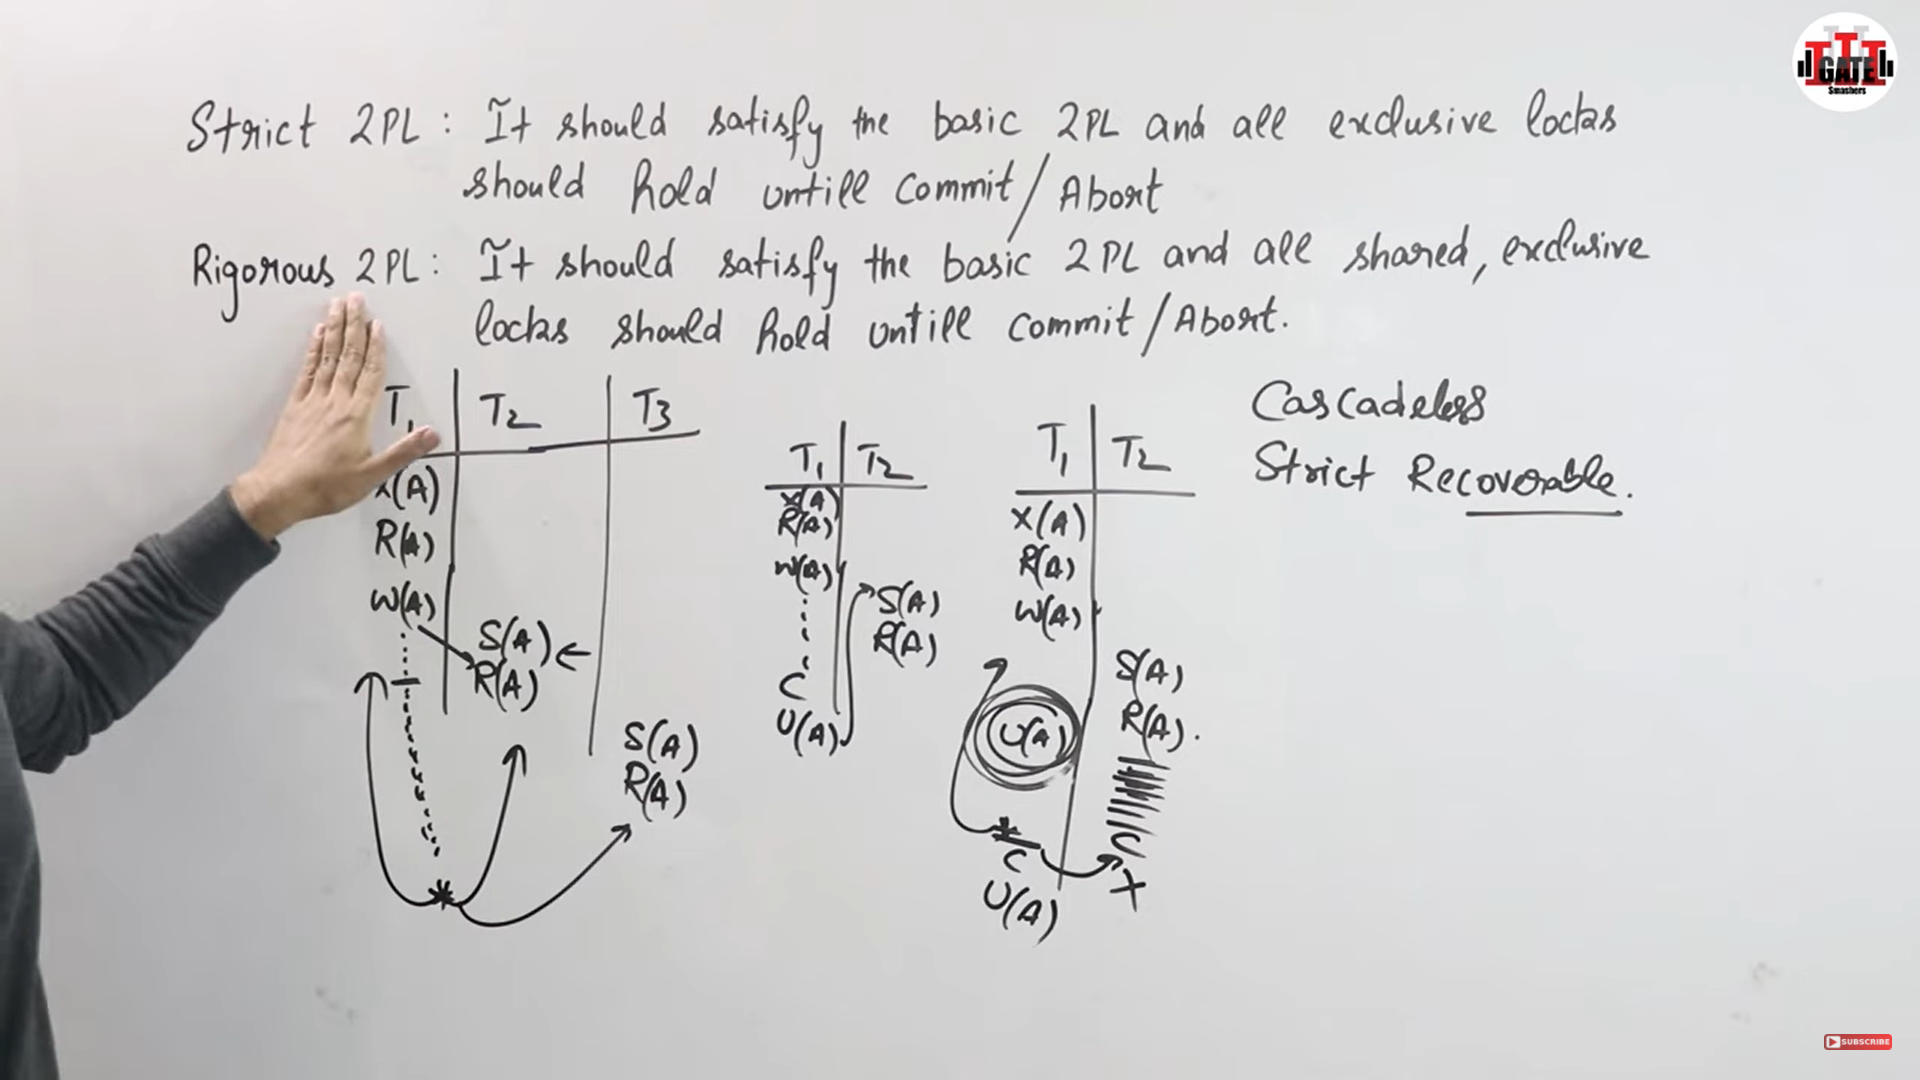 Strict 2PL: It should satisfy the basic 2PL and all exclusive locks
should hold untill Commit/Abort
Rigorous 2PL: It should satisfy the basic 2PL and all shared, exclusive
locks should hold untill commit/Abort.
T1 T2 T3
X(A)
R(A)
W(A)
S(A)
R(A)
S(A)
R(A)
T1 T2
X(A)
R(A)
W(A)
S(A)
R(A)
C
U(A)
T1 T2
X(A)
R(A)
W(A)
S(A)
R(A).
U(A)
C
C
U(A)
Cascadeless
Strict Recoverable.
GATE
Smashers
SUBSCRIBE